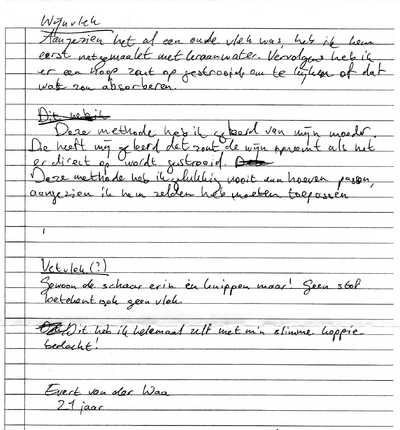 Wijnvlek
Aangezien het al een oude vlek was, heb ik hem
eerst natgemaakt met kraanwater. Vervolgens heb ik
er een hoop zout op gestrooid om te kijken of dat
wat zou absorberen.
Dit heb ik
Deze methode heb ik geleerd van mijn moeder.
Die heeft mij geleerd dat zout de wijn opneemt als het
er direct op wordt gestrooid.
Deze methode heb ik gelukkig nooit aan hoeven passen,
aangezien ik hem zelden heb moeten toepassen
Vetvlek (?)
Gewoon de schaar erin en knippen maar! Geen stof
betekent ook geen vlek.
Dit heb ik helemaal zelf met m'n slimme koppie
bedacht!
Evert van der Waa
21 jaar